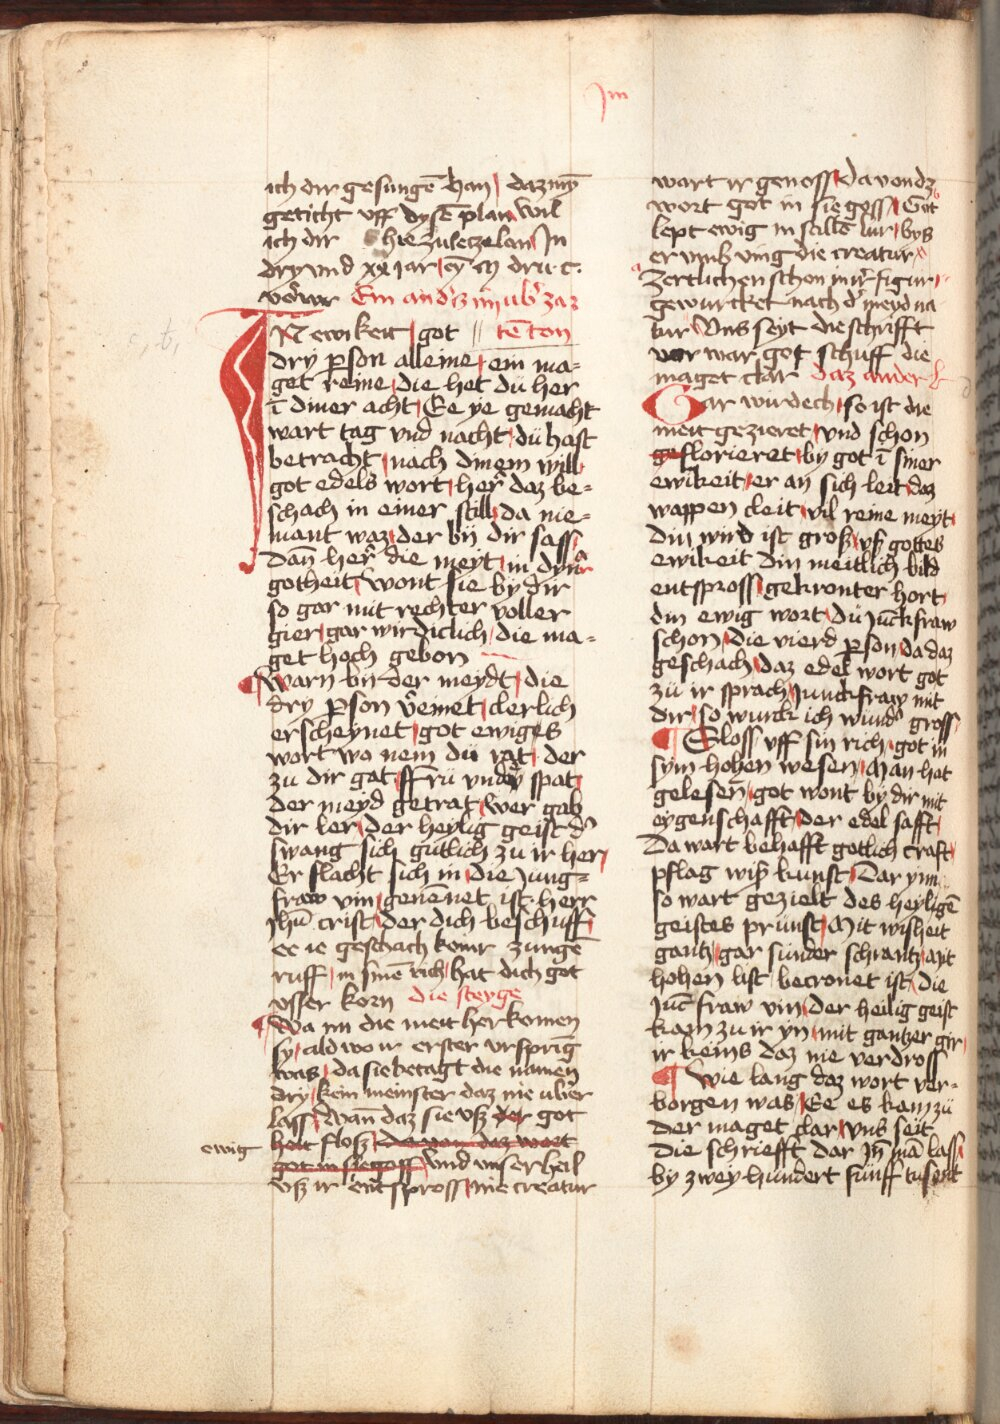 Jm
ich dir gesungē han / daz myn̄
geticht vff dysē plan / wil
ich dir hie zuletze lan / Jn
dry vnd xx jar /
Ein and's im ub' zaz
JN ewikeit / got // tē ton
dry pson alleine / ein ma=
get reine / die het du her
ī diner acht / Ee ye gemacht
wart tag vnd nacht / du hast
betracht / nach dinem will
got edels wort / her daz be=
schach in einer still / da nie=
mant waz / der bÿ dir sass /
Dan̄ her die meyt / in dyn'
gotheit / wont sie by dir
so gar mit rechter voller
gier / gar wirdiclich / die ma=
get hoch geborn
Warn bir der meydt / die
dry pson v'einet / clerlich
erscheynet / got ewiges
wort wo nem du rat / der
zu dir gat / ffru vnd spat /
der meyd getrat / wer gab
dir ler / der heylig geist d'
swang sich gutlich zu ir her /
Er flacht sich in die Jung=
fraw vin / genēnet ist herr
Jhū crist / der dich beschuff /
ee ie geschach keinr zungē
ruff / in sinē rich / hat dich got
vsser korn die steyge
Wa nu die meit her komen
sy / ald wo ir erster vrsprīg
was / da sie betagt die namen
dry / kein meinster daz nie uber
lass / Wan̄ daz sie vsz der got
ewig
heit flosz da von daz wort
got in sie goss / Vnd vnser heil
vsz ir entspross / nie creatur
wart ir genoss / da von dz
wort got in sie goss / Got
lept ewig in stille lur / bys
er vmb ving die creatur
Zertlichen schon in ir figur /
gewurcket nach d' meyd na=
tur / Vns seyt die schrifft
vor war got schuff die
maget clar daz ander
Gar wirdech / so ist die
meit gezieret / vnd schon
ge florieret / by got ī siner
ewikeit / er an sich leit / daz
wappen cleit / vil reine meyt /
Din wird ist grosz / vsz gottes
ewikeit din meitlich bild
entspross / gekronter hort /
din ewig wort / du Juckfraw
schon / die vierd pson / da daz
geschach / daz edel wort got
zu ir sprach / Junckfraw mit
dir / so wurck ich wund' gross /
Sloss vff sin rich / got in
sym hohen wesen / Man hat
gelesen / got wont by dir mit
eygenschafft / der edel safft /
Da wart behafft gotlich craft /
pflag wisz kunst / Dar ynn
so wart gezielt des heyligē
geistes prunst / Mit wisheit
gantz / gar sunder schrantz / mit
hohen list / becronet ist / die
Juc̄fraw vin / der heilig geist
kam zu ir yn / mit gantzer gir /
ir keins daz nie verdross
Wie lang daz wort ver=
borgen was / Ee es kam zu
der maget clar / vns seit
die schriefft dar jn̄ man lass /
by zwey hundert funff tusent